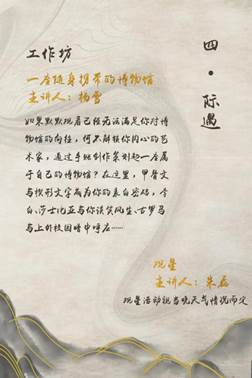 四·际遇
工作坊
一座随身携带的博物馆
主讲人：杨雪
如果默默观看已经无法满足你对博
物馆的向往，何不解锁你内心的艺
术家，通过手账创作策划起一座属
于自己的博物馆？在这里，甲骨文
与楔形文字成为你的表白密码，李
白、莎士比亚与你谈笑风生、古罗马
与上林校园暗中呼应……
观星
主讲人：朱磊
观星活动视当晚天气情况而定